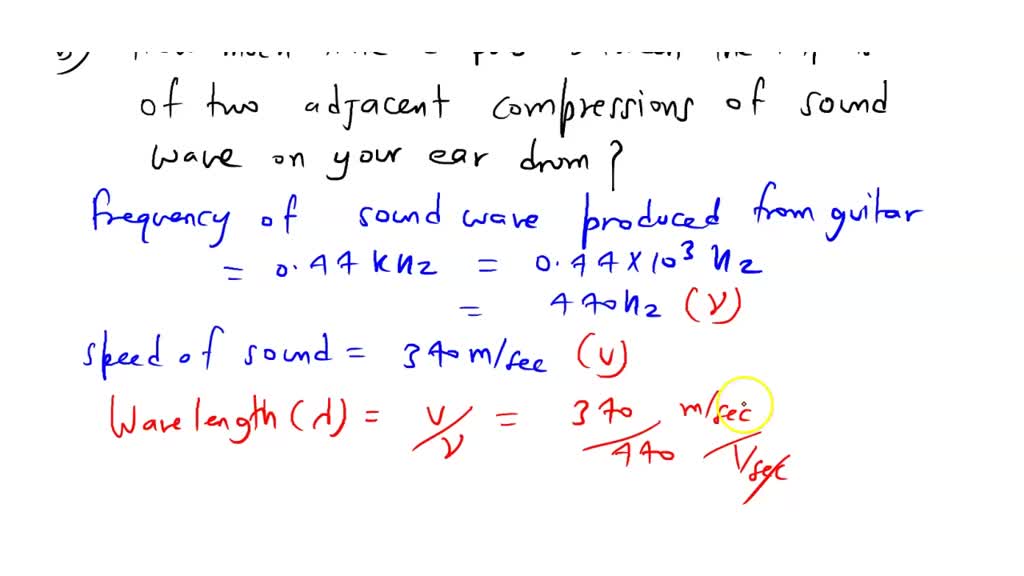 of two adjacent compressions of sound
wave on your ear drum?
frequency of sound wave produced from guitar
= 0.44 kHz = 0.44 × 10³ Hz
= 440 Hz (ν)
speed of sound = 340 m/sec (v)
Wavelength (λ) = v/ν = 340/440 m/sec / 1/sec